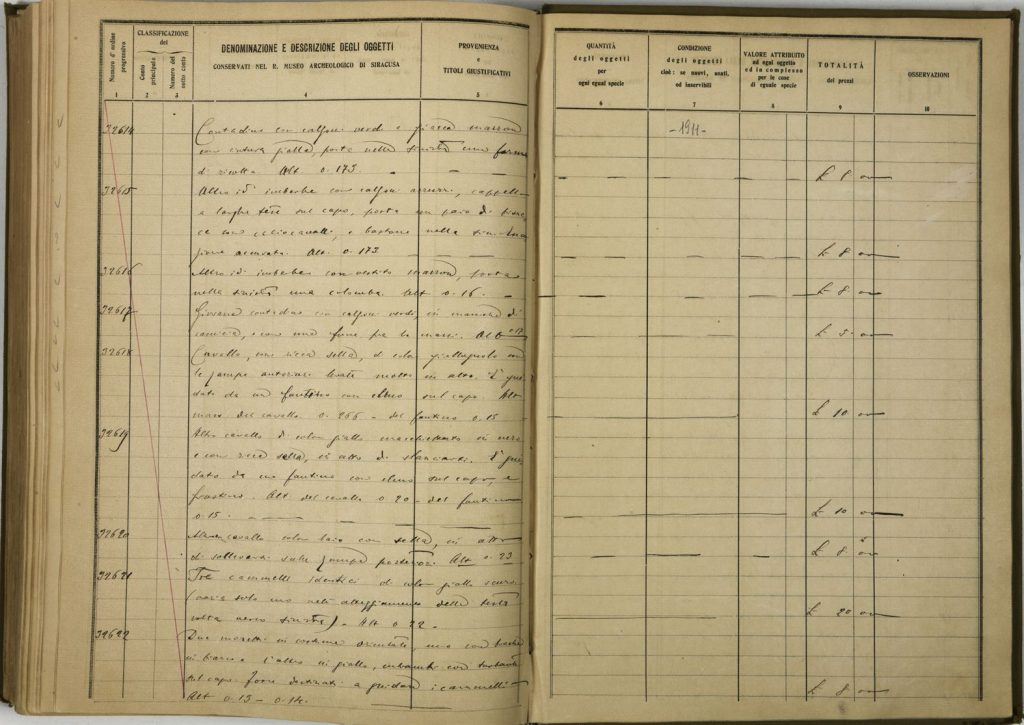 Numero d'ordine progressivo
CLASSIFICAZIONE del
Conto principale
Numero del sotto conto
DENOMINAZIONE E DESCRIZIONE DEGLI OGGETTI
CONSERVATI NEL R. MUSEO ARCHEOLOGICO DI SIRACUSA
PROVENIENZA
e
TITOLI GIUSTIFICATIVI
1 2 3 4 5
QUANTITÀ
degli oggetti
per
ogni egual specie
CONDIZIONE
degli oggetti
cioè: se nuovi, usati,
od inservibili
VALORE ATTRIBUITO
ad ogni oggetto
ed in complesso
per le cose
di eguale specie
TOTALITÀ
dei prezzi
OSSERVAZIONI
6 7 8 9 10
-1911-
32614 Contadino con calzoni verdi e giacca marrone
con cintura gialla, porta nella sinistra una forma
di ricotta. Alt. 0.173. £ 8 00
32615 Altro id imberbe con calzoni azzurri, cappello
a larghe tese sul capo, porta un paio di
caciocavalli, e bastone nella
Alt. 0.173 £ 8 00
32616 Altro id imberbe con vestito marrone, porta
nella sinistra una colomba. Alt 0.16. £ 8 00
32617 Giovane contadino con calzoni verdi, in maniche di
camicia, e con una fune fra le mani. Alt 0.17 £ 5 00
32618 Cavallo, con ricca sella, di color giallognolo con
le zampe anteriori levate molto in alto. È gui
dato da un fantino con elmo sul capo. Alt
mass del cavallo 0.266 - del fantino 0.15 £ 10 00
32619 Altro cavallo di color giallo macchiettato in nero
e con ricca sella, in atto di slanciarsi. È gui
dato da un fantino con elmo sul capo, e
frustino. Alt. del cavallo 0.20 - del fantino
0.15. £ 10 00
32620 Altro cavallo color baio con sella, in atto
di sollevarsi sulle zampe posteriori. Alt 0.23 £ 8 00
32621 Tre cammelli identici di color giallo scuro
(varia solo uno nell'atteggiamento della testa
volta verso sinistra) - Alt 0.22 - £ 20 00
32622 Due moretti in costume orientale, uno con
in bianco e l'altro in giallo, entrambi con turbante
sul capo. Forse destinati a guidare i cammelli
Alt 0.15 - 0.14. £ 8 00